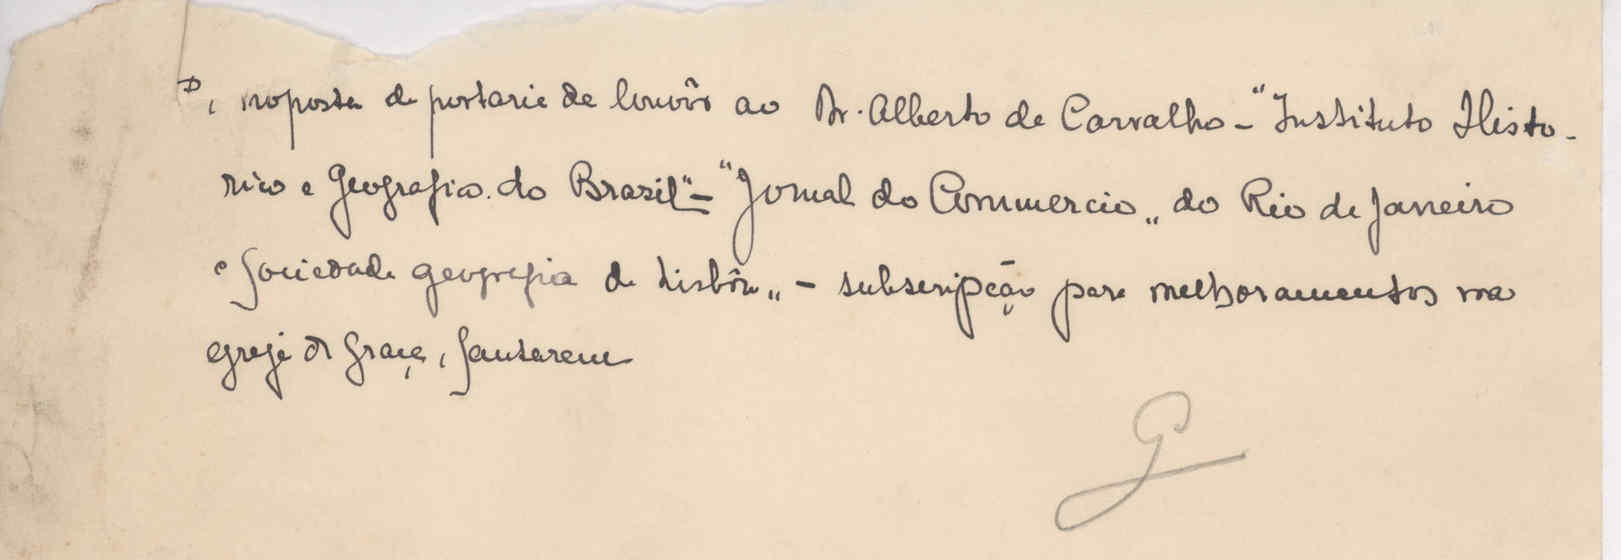 Proposta de portaria de louvôr ao Dr. Alberto de Carvalho - "Instituto Histo-
rico e Geografico do Brasil" - "Jornal do Commercio„ do Rio de Janeiro
e Sociedade geografia de Lisbôa„ - subscripção para melhoramentos na
egreja da Graça, Santarem
G